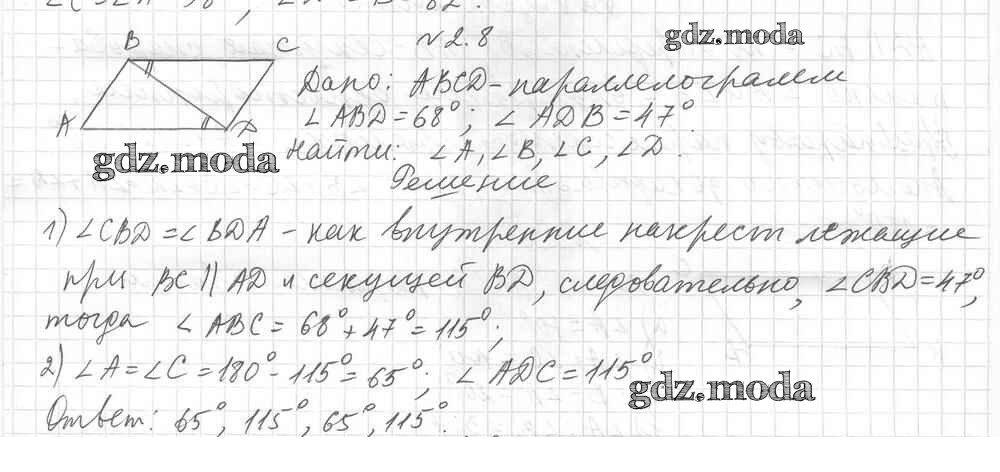 №2.8
gdz.moda
B C
Дано: ABCD - параллелограмм
∠ABD = 68°; ∠ADB = 47°
A D
gdz.moda
Найти: ∠A, ∠B, ∠C, ∠D.
Решение
1) ∠CBD = ∠BDA - как внутренние накрест лежащие
при BC || AD и секущей BD, следовательно, ∠CBD = 47°,
тогда ∠ABC = 68° + 47° = 115°;
2) ∠A = ∠C = 180° - 115° = 65°; ∠ADC = 115°
gdz.moda
Ответ: 65°, 115°, 65°, 115°.